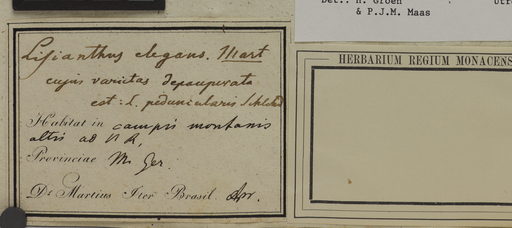 Det.: H. Groen
& P.J.M. Maas
Lisianthus elegans. Mart
cujus varietas depauperata
est: L. peduncularis Schlchd
Habitat in campis montanis
altis ad V. R,
Provinciae M. Ger.
Dr Martius Iter Brasil. Apr.
HERBARIUM REGIUM MONACENS